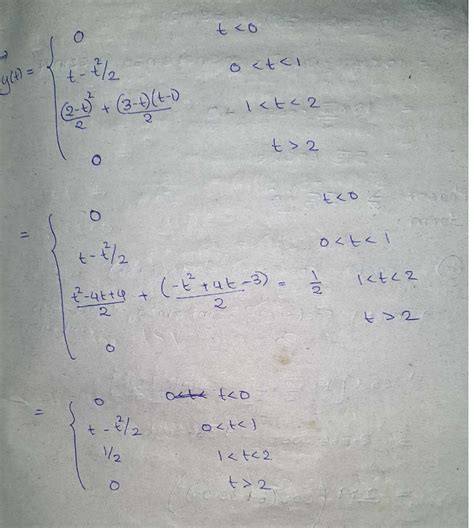 y(t) = { 0    t<0
t - t²/2    0<t<1
(2-t)²/2 + (3-t)(t-1)/2    1<t<2
0    t>2
= { 0    t<0
t - t²/2    0<t<1
t²-4t+4/2 + (-t²+4t-3)/2 = 1/2    1<t<2
0    t>2
= { 0    0<t< t<0
t - t²/2    0<t<1
1/2    1<t<2
0    t>2